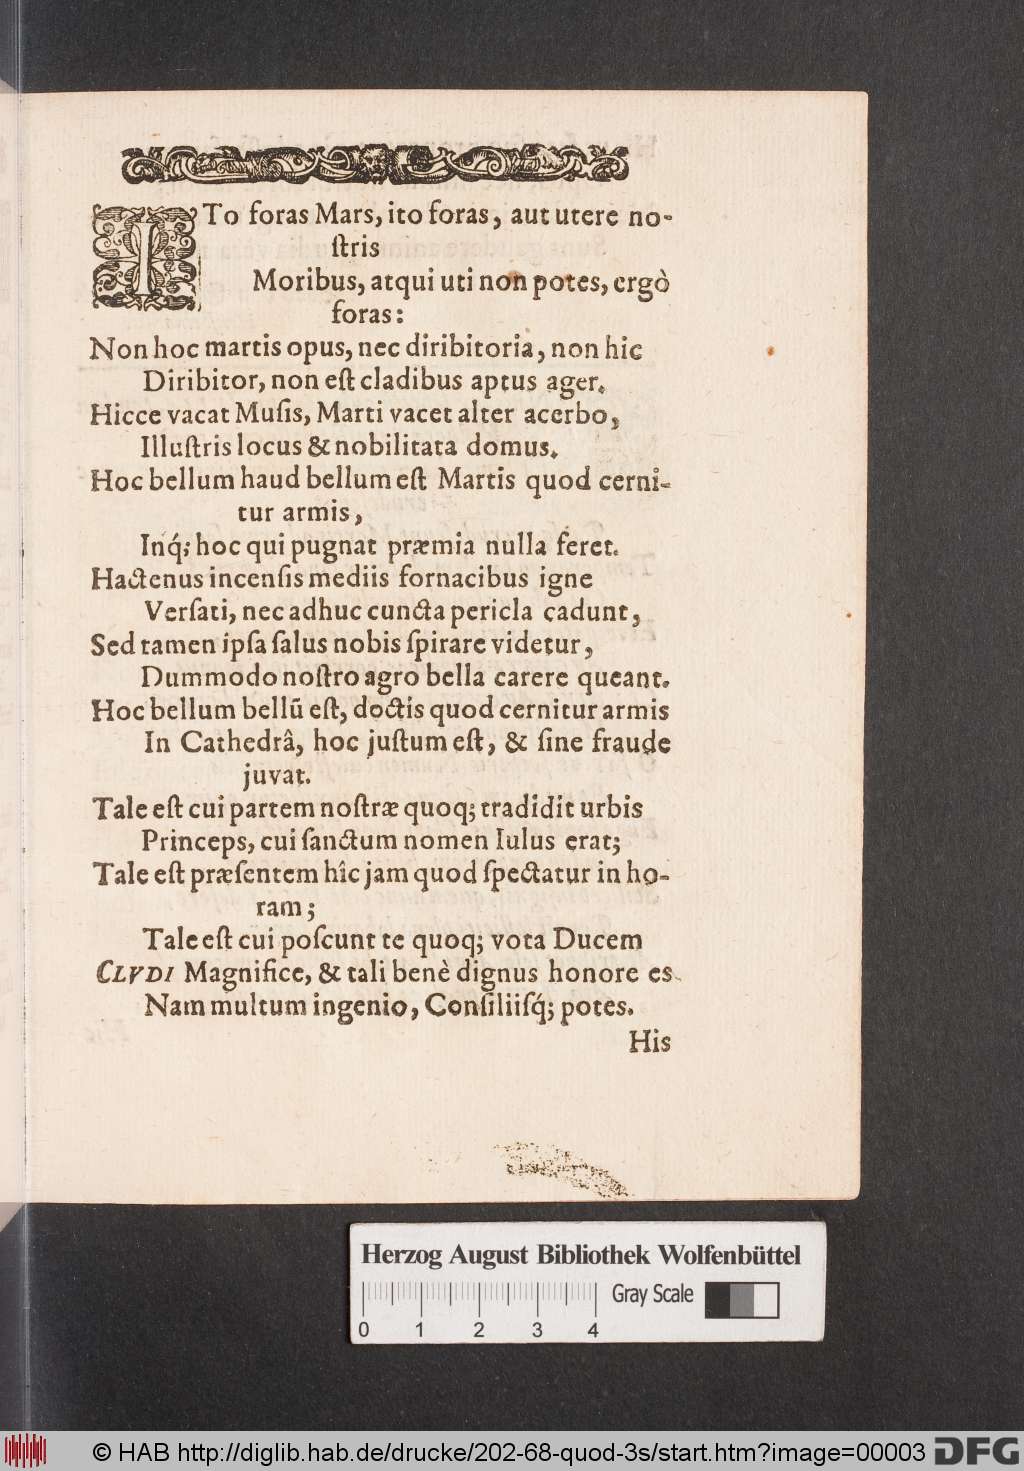 ITo foras Mars, ito foras, aut utere no-
ſtris
Moribus, atqui uti non potes, ergò
foras:
Non hoc martis opus, nec diribitoria, non hic
Diribitor, non eſt cladibus aptus ager.
Hicce vacat Muſis, Marti vacet alter acerbo,
Illuſtris locus & nobilitata domus.
Hoc bellum haud bellum eſt Martis quod cerni-
tur armis,
Inq́; hoc qui pugnat præmia nulla feret.
Hactenus incenſis mediis fornacibus igne
Verſati, nec adhuc cuncta pericla cadunt,
Sed tamen ipſa ſalus nobis ſpirare videtur,
Dummodo noſtro agro bella carere queant.
Hoc bellum bellū eſt, doctis quod cernitur armis
In Cathedrâ, hoc juſtum eſt, & ſine fraude
juvat.
Tale eſt cui partem noſtræ quoq; tradidit urbis
Princeps, cui ſanctum nomen Iulus erat;
Tale eſt præſentem hîc jam quod ſpectatur in ho-
ram;
Tale eſt cui poſcunt te quoq; vota Ducem
CLVDI Magnifice, & tali benè dignus honore es
Nam multum ingenio, Conſiliiſq́; potes.
His
Herzog August Bibliothek Wolfenbüttel
Gray Scale
0 1 2 3 4
© HAB http://diglib.hab.de/drucke/202-68-quod-3s/start.htm?image=00003 DFG